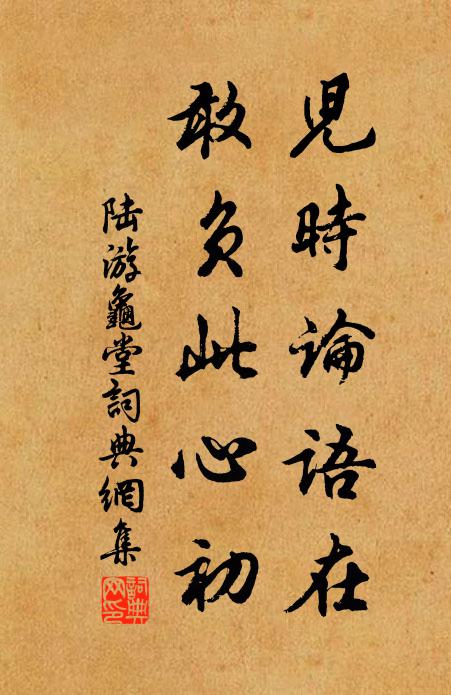 兒時論語在
敢負此心初
陸游龜堂詞典網集
詞典網印